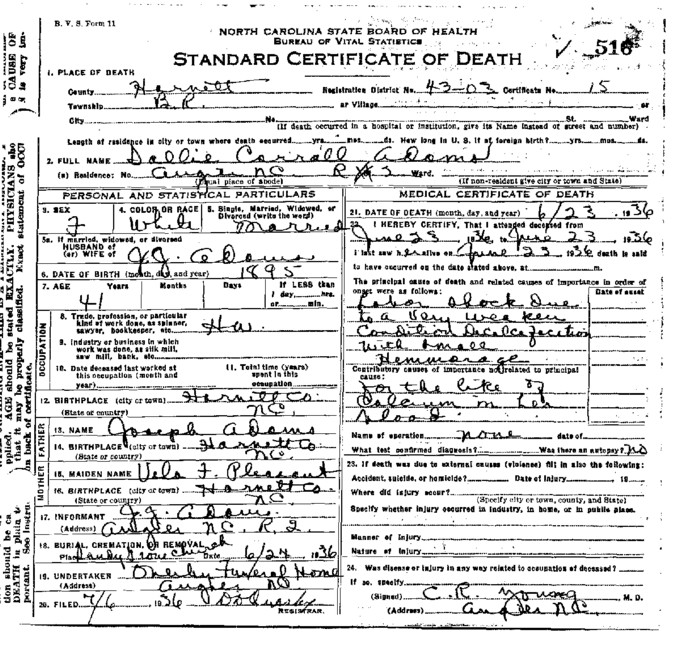 B. V. S. Form 11
NORTH CAROLINA STATE BOARD OF HEALTH
BUREAU OF VITAL STATISTICS
STANDARD CERTIFICATE OF DEATH
✓ 516
1. PLACE OF DEATH
County Harnett Registration District No. 43-03 Certificate No. 15
Township B.R. or Village or
City No. St. Ward
(If death occurred in a hospital or institution, give its Name instead of street and number)
Length of residence in city or town where death occurred yrs. mos. ds. How long in U. S. if of foreign birth? yrs. mos. ds.
2. FULL NAME Dallie Carrall Adams
(a) Residence: No. Angier NC R 2 Ward.
(Usual place of abode) (If non-resident give city or town and State)
PERSONAL AND STATISTICAL PARTICULARS
3. SEX 4. COLOR OR RACE 5. Single, Married, Widowed, or Divorced (write the word)
F White Married
5a. If married, widowed, or divorced
HUSBAND of
(or) WIFE of J.J. Adams
6. DATE OF BIRTH (month, day, and year) 1895
7. AGE Years Months Days If LESS than
1 day, hrs.
or min.
41
OCCUPATION
8. Trade, profession, or particular
kind of work done, as spinner,
sawyer, bookkeeper, etc. H.W.
9. Industry or business in which
work was done, as silk mill,
saw mill, bank, etc.
10. Date deceased last worked at
this occupation (month and
year)
11. Total time (years)
spent in this
occupation
12. BIRTHPLACE (city or town) Harnett Co.
(State or country) NC
FATHER
13. NAME Joseph Adams
14. BIRTHPLACE (city or town) Harnett Co
(State or country) NC.
MOTHER
15. MAIDEN NAME F. Pleasant
16. BIRTHPLACE (city or town) Harnett Co.
(State or country) NC
17. INFORMANT J.J. Adams
(Address) Angier NC. R 2
18. BURIAL, CREMATION, OR REMOVAL
Place Sandy Grove Church Date 6/24 1936
19. UNDERTAKER Funeral Home
(Address) Angier NC
20. FILED 7/6 1936
REGISTRAR.
MEDICAL CERTIFICATE OF DEATH
21. DATE OF DEATH (month, day, and year) 6/23 1936
22. I HEREBY CERTIFY, That I attended deceased from
June 23 1936 to June 23 1936
I last saw h er alive on June 23 1936 death is said
to have occurred on the date stated above, at m.
The principal cause of death and related causes of importance in order of
onset were as follows: Date of onset
Labor Shock Due
to a Very weaken
Condition
with small
Hemmorage
Contributory causes of importance not related to principal
cause:
for the like of
Calcium in her
blood
Name of operation none date of
What test confirmed diagnosis? Was there an autopsy? no
23. If death was due to external causes (violence) fill in also the following:
Accident, suicide, or homicide? Date of injury 19
Where did injury occur?
(Specify city or town, county, and State)
Specify whether injury occurred in industry, in home, or in public place.
Manner of injury
Nature of injury
24. Was disease or injury in any way related to occupation of deceased?
If so, specify
(Signed) C. R. Young M. D.
(Address) Angier NC.